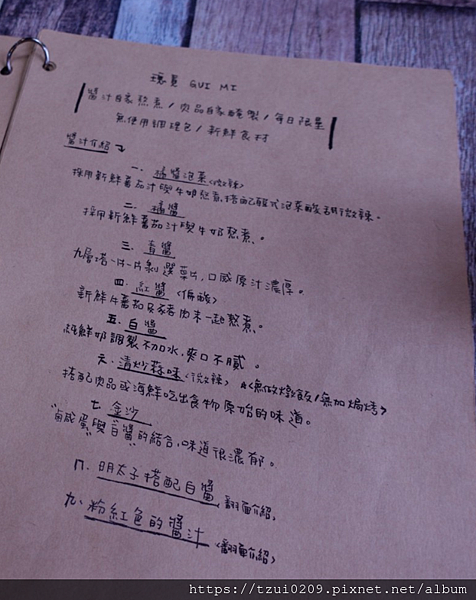 瑰覓 GUI MI
醬汁自家熬煮/肉品自家醃製/每日限量
無使用調理包/新鮮食材
醬汁介紹↴
一、橘醬泡菜<微辣>
採用新鮮蕃茄汁與牛奶熬煮.搭自己韓式泡菜酸甜微辣。
二、橘醬
採用新鮮蕃茄汁與牛奶熬煮。
三、青醬
九層塔一片一片剝選葉片,口感原汁濃厚。
四、紅醬 <偏酸>
新鮮牛蕃茄及豬肉末一起熬煮。
五、白醬
純鮮奶調製不加水,爽口不膩。
六、清炒蒜味<微辣> <無做燉飯/無加焗烤>
搭配肉品或海鮮吃出食物原始的味道。
七、金沙
"鹹蛋"與"白醬"的結合,味道很濃郁。
八、明太子搭配白醬<翻面介紹>
九、粉紅色的醬汁<翻面介紹>
https://tzui0209.pixnet.net/album